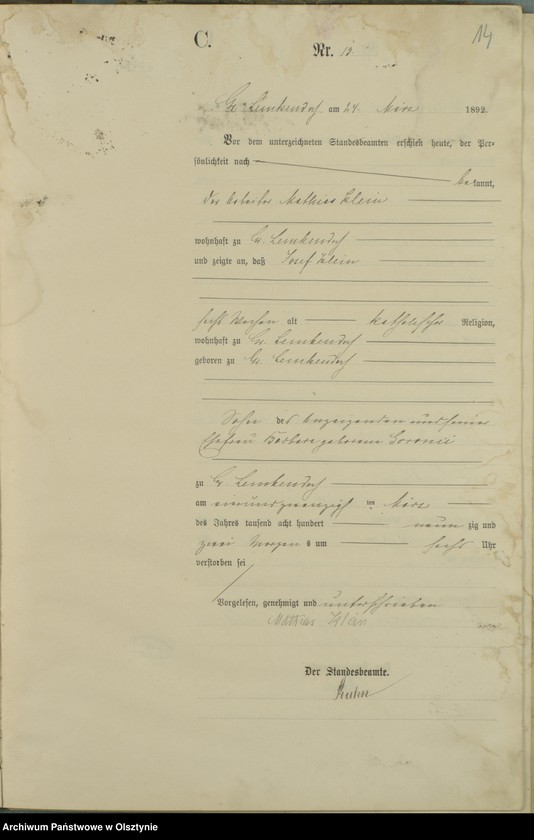 C.
14
Nr.
Gr. Lemkendorf am 24. März 1892.
Vor dem unterzeichneten Standesbeamten erschien heute, der Per-
sönlichkeit nach
bekannt,
der Arbeiter Mathias Klein
wohnhaft zu Gr. Lemkendorf
und zeigte an, daß Josef Klein
sechs Wochen alt katholischer Religion,
wohnhaft zu Gr. Lemkendorf
geboren zu Gr. Lemkendorf
Sohn des Anzeigenden und seiner
Ehefrau Barbara geborene
zu Gr. Lemkendorf
am einundzwanzigsten März
des Jahres tausend acht hundert neun zig und
zwei Morgens um sechs Uhr
verstorben sei
Vorgelesen, genehmigt und unterschrieben
Mathias Klein
Der Standesbeamte.
Archiwum Państwowe w Olsztynie